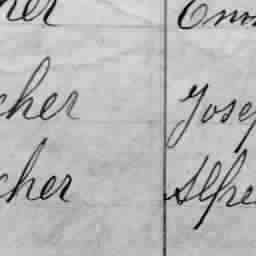 her Emm
cher Josep
cher Alfre